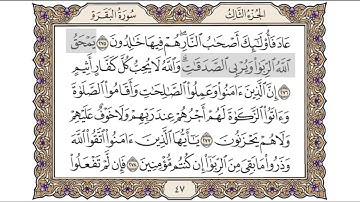 سورة البقرة
الجزء الثالث
عَادَ فَأُولَٰئِكَ أَصْحَابُ النَّارِ هُمْ فِيهَا خَالِدُونَ ٢٧٥ يَمْحَقُ
اللَّهُ الرِّبَوٰا۟ وَيُرْبِى الصَّدَقَٰتِ وَاللَّهُ لَا يُحِبُّ كُلَّ كَفَّارٍ أَثِيمٍ
٢٧٦ إِنَّ الَّذِينَ ءَامَنُوا وَعَمِلُوا الصَّٰلِحَٰتِ وَأَقَامُوا الصَّلَوٰةَ
وَءَاتَوُا الزَّكَوٰةَ لَهُمْ أَجْرُهُمْ عِندَ رَبِّهِمْ وَلَا خَوْفٌ عَلَيْهِمْ
وَلَا هُمْ يَحْزَنُونَ ٢٧٧ يَٰٓأَيُّهَا الَّذِينَ ءَامَنُوا اتَّقُوا اللَّهَ
وَذَرُوا مَا بَقِىَ مِنَ الرِّبَوٰٓا۟ إِن كُنتُم مُّؤْمِنِينَ ٢٧٨ فَإِن لَّمْ تَفْعَلُوا
٤٧